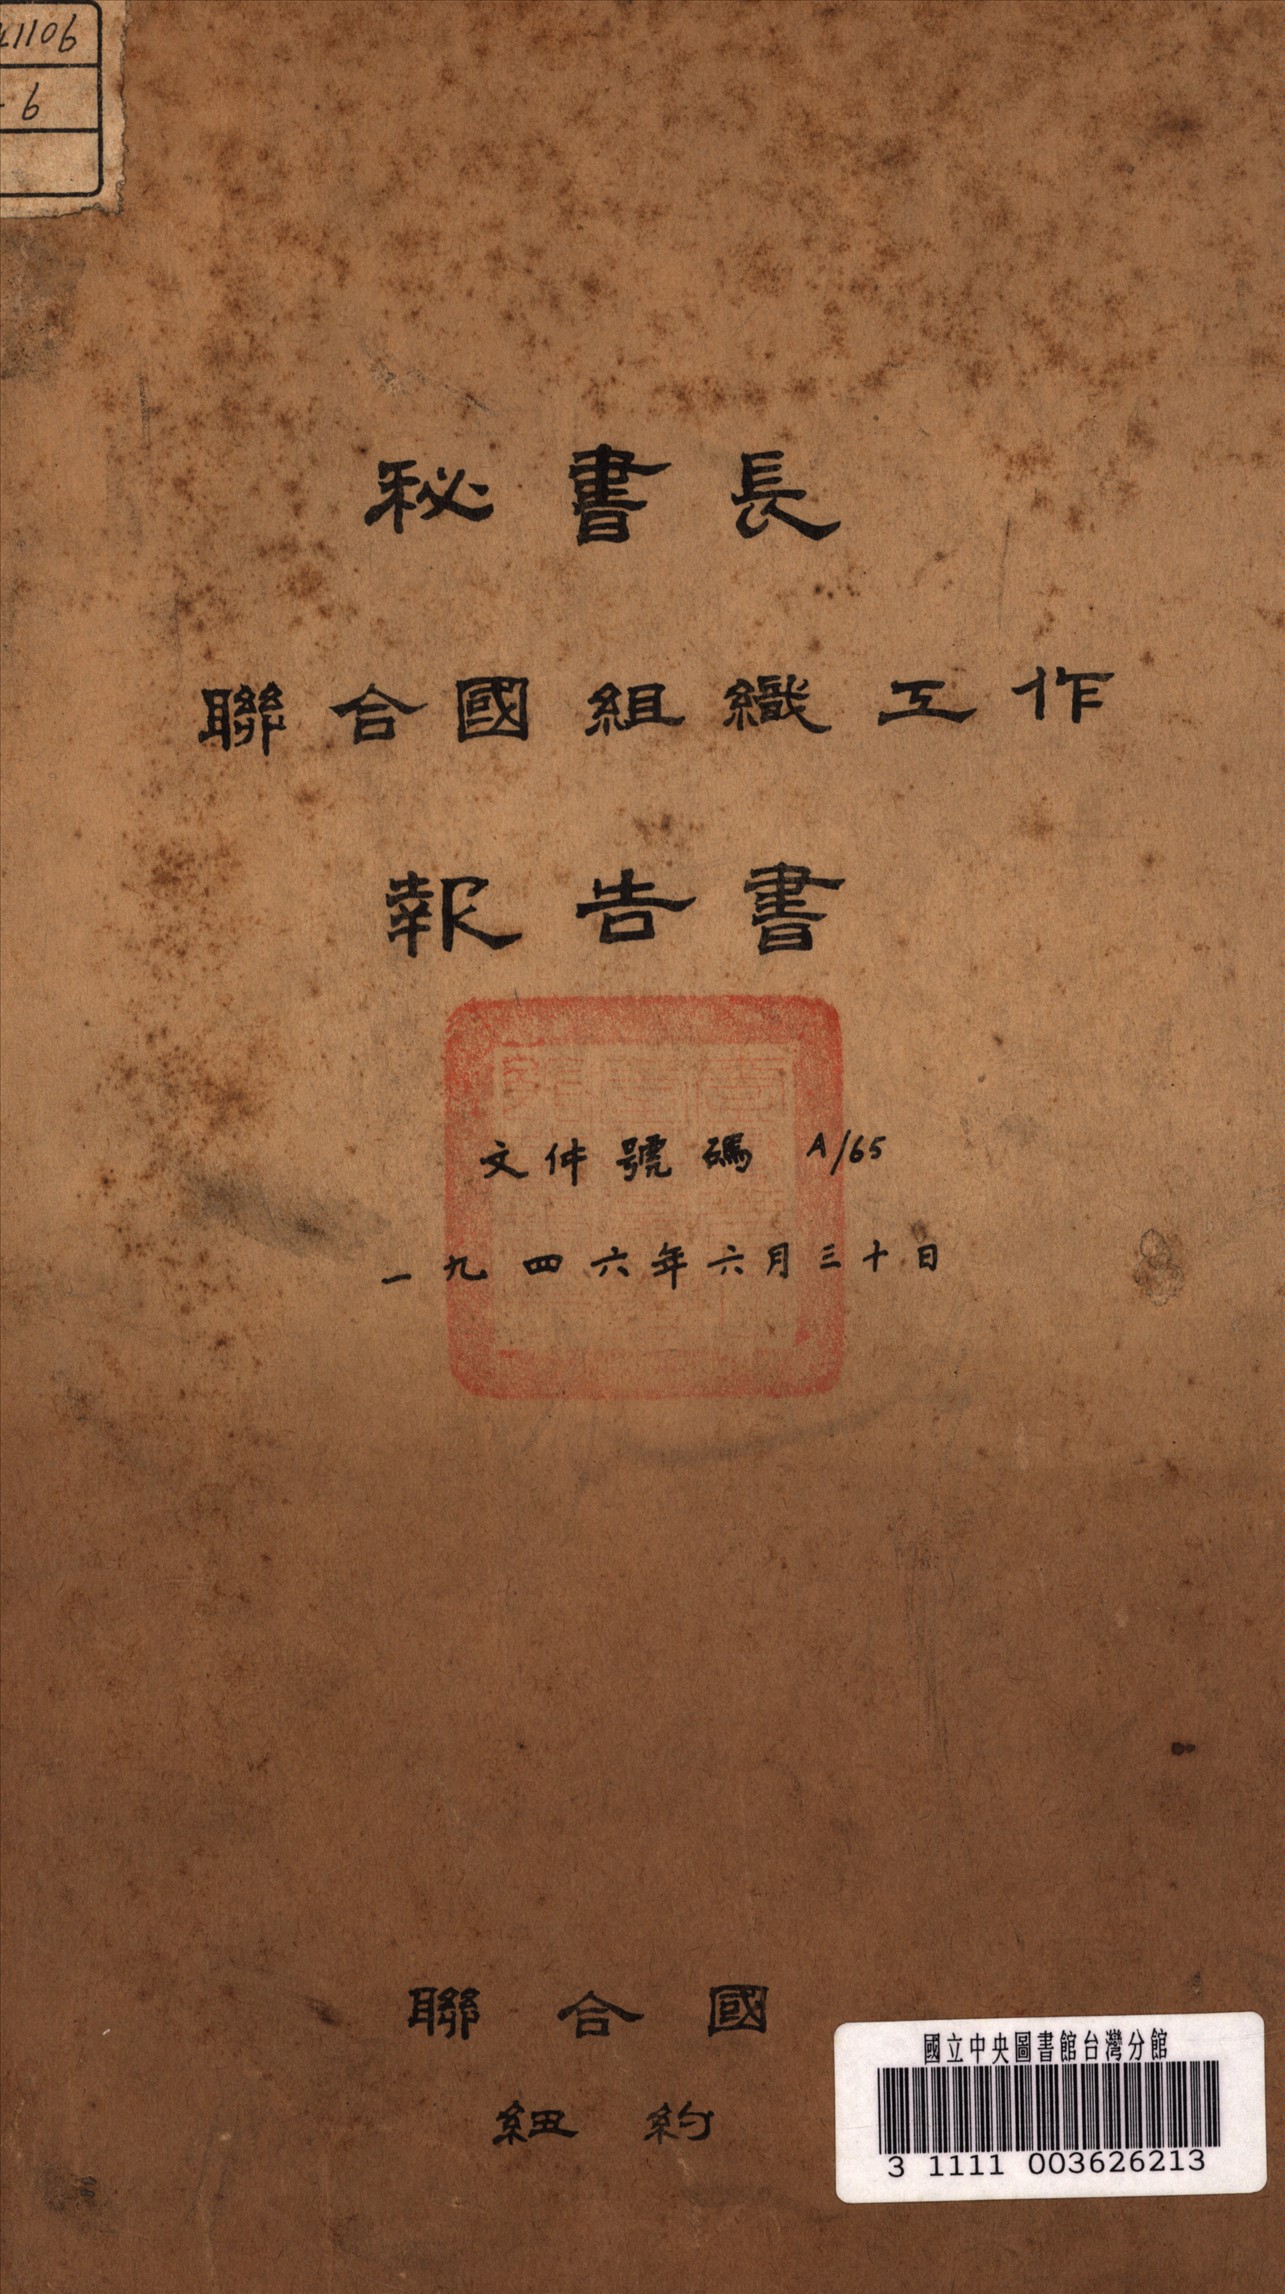 秘書長
聯合國組織工作
報告書
文件號碼 A/65
一九四六年六月三十日
聯合國
紐約
國立中央圖書館台灣分館
3 1111 003626213